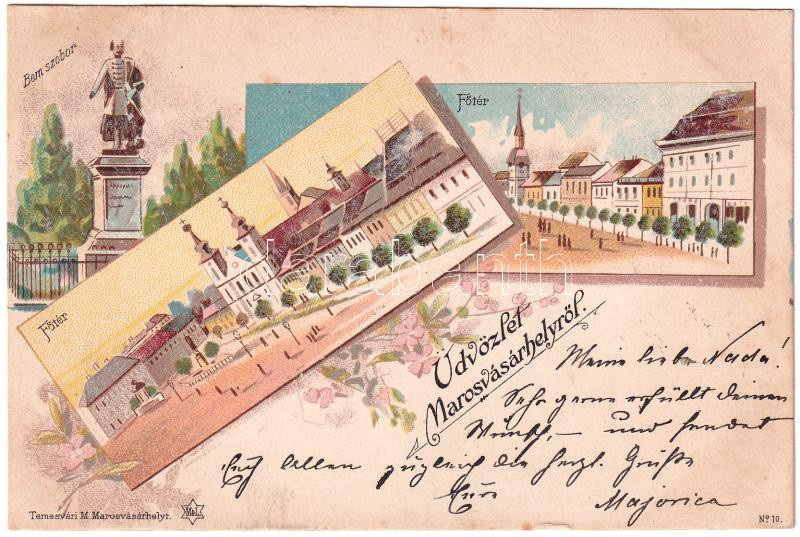 Bem szobor
Főtér
Főtér
Üdvözlet
Marosvásárhelyről.
Meine liebe Nada!
Sehr gerne erfüllt deinen
Wunsch, – und sendet
Euch allen zugleich die herzl. Grüße
Eure
Majorica
Temesvári M. Marosvásárhelyt.
M&L
Nº 10.
darabanth